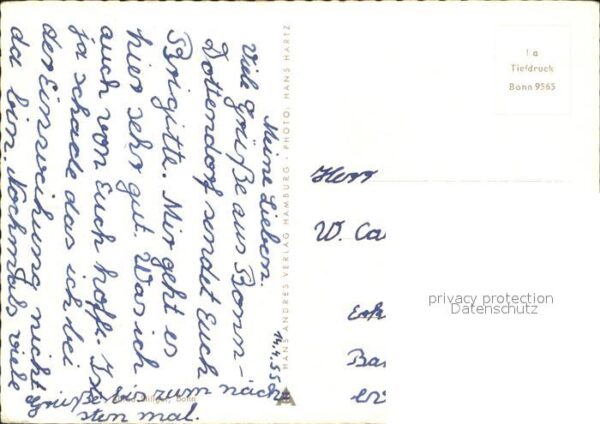 Meine Lieben.
Viele Grüße aus Bonn-
Dottendorf sendet Euch
Brigitte. Mir geht es
hier sehr gut. Was ich
auch von Euch hoffe. Ist
ja schade das ich bei
der Einweihung nicht
da bin Nochmals viele
Grüße bis zum näch
sten mal.
14.4.55
HANS ANDRES VERLAG HAMBURG · PHOTO: HANS HARTZ
1a
Tiefdruck
Bonn 9565
Herr
W. Ca
Ba
privacy protection
Datenschutz
Bonn